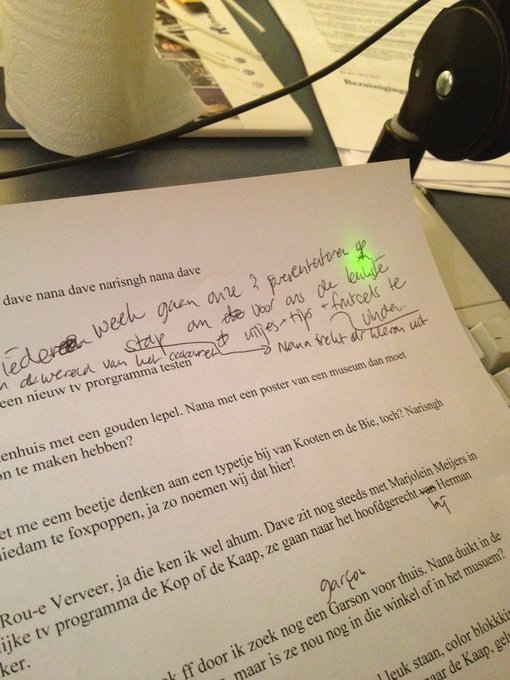 Bezuiniging
dave nana dave narisngh nana dave
iedereen week gaan onze 2 presentatoren de
op stap om voor ons de leukste
wereld van het uitjes + tips + te
vinden
Nana trekt er uit
een nieuw tv prorgramma testen
enhuis met een gouden lepel. Nana met een poster van een museum dan moet
on te maken hebben?
et me eem beetje denken aan een typetje bij van Kooten en de Bie, toch? Narisngh
iedam te foxpoppen, ja zo noemen wij dat hier!
Rou-e Verveer, ja die ken ik wel ahum. Dave zit nog steeds met Marjolein Meijers in
lijke tv programma de Kop of de Kaap, ze gaan naar het hoofdgerecht van Herman
bij
garson
k ff door ik zoek nog een Garson voor thuis. Nana duikt in de
, maar is ze nou nog in die winkel of in het musuem?
ker.
leuk staan, color blokkking
naar de Kaap,